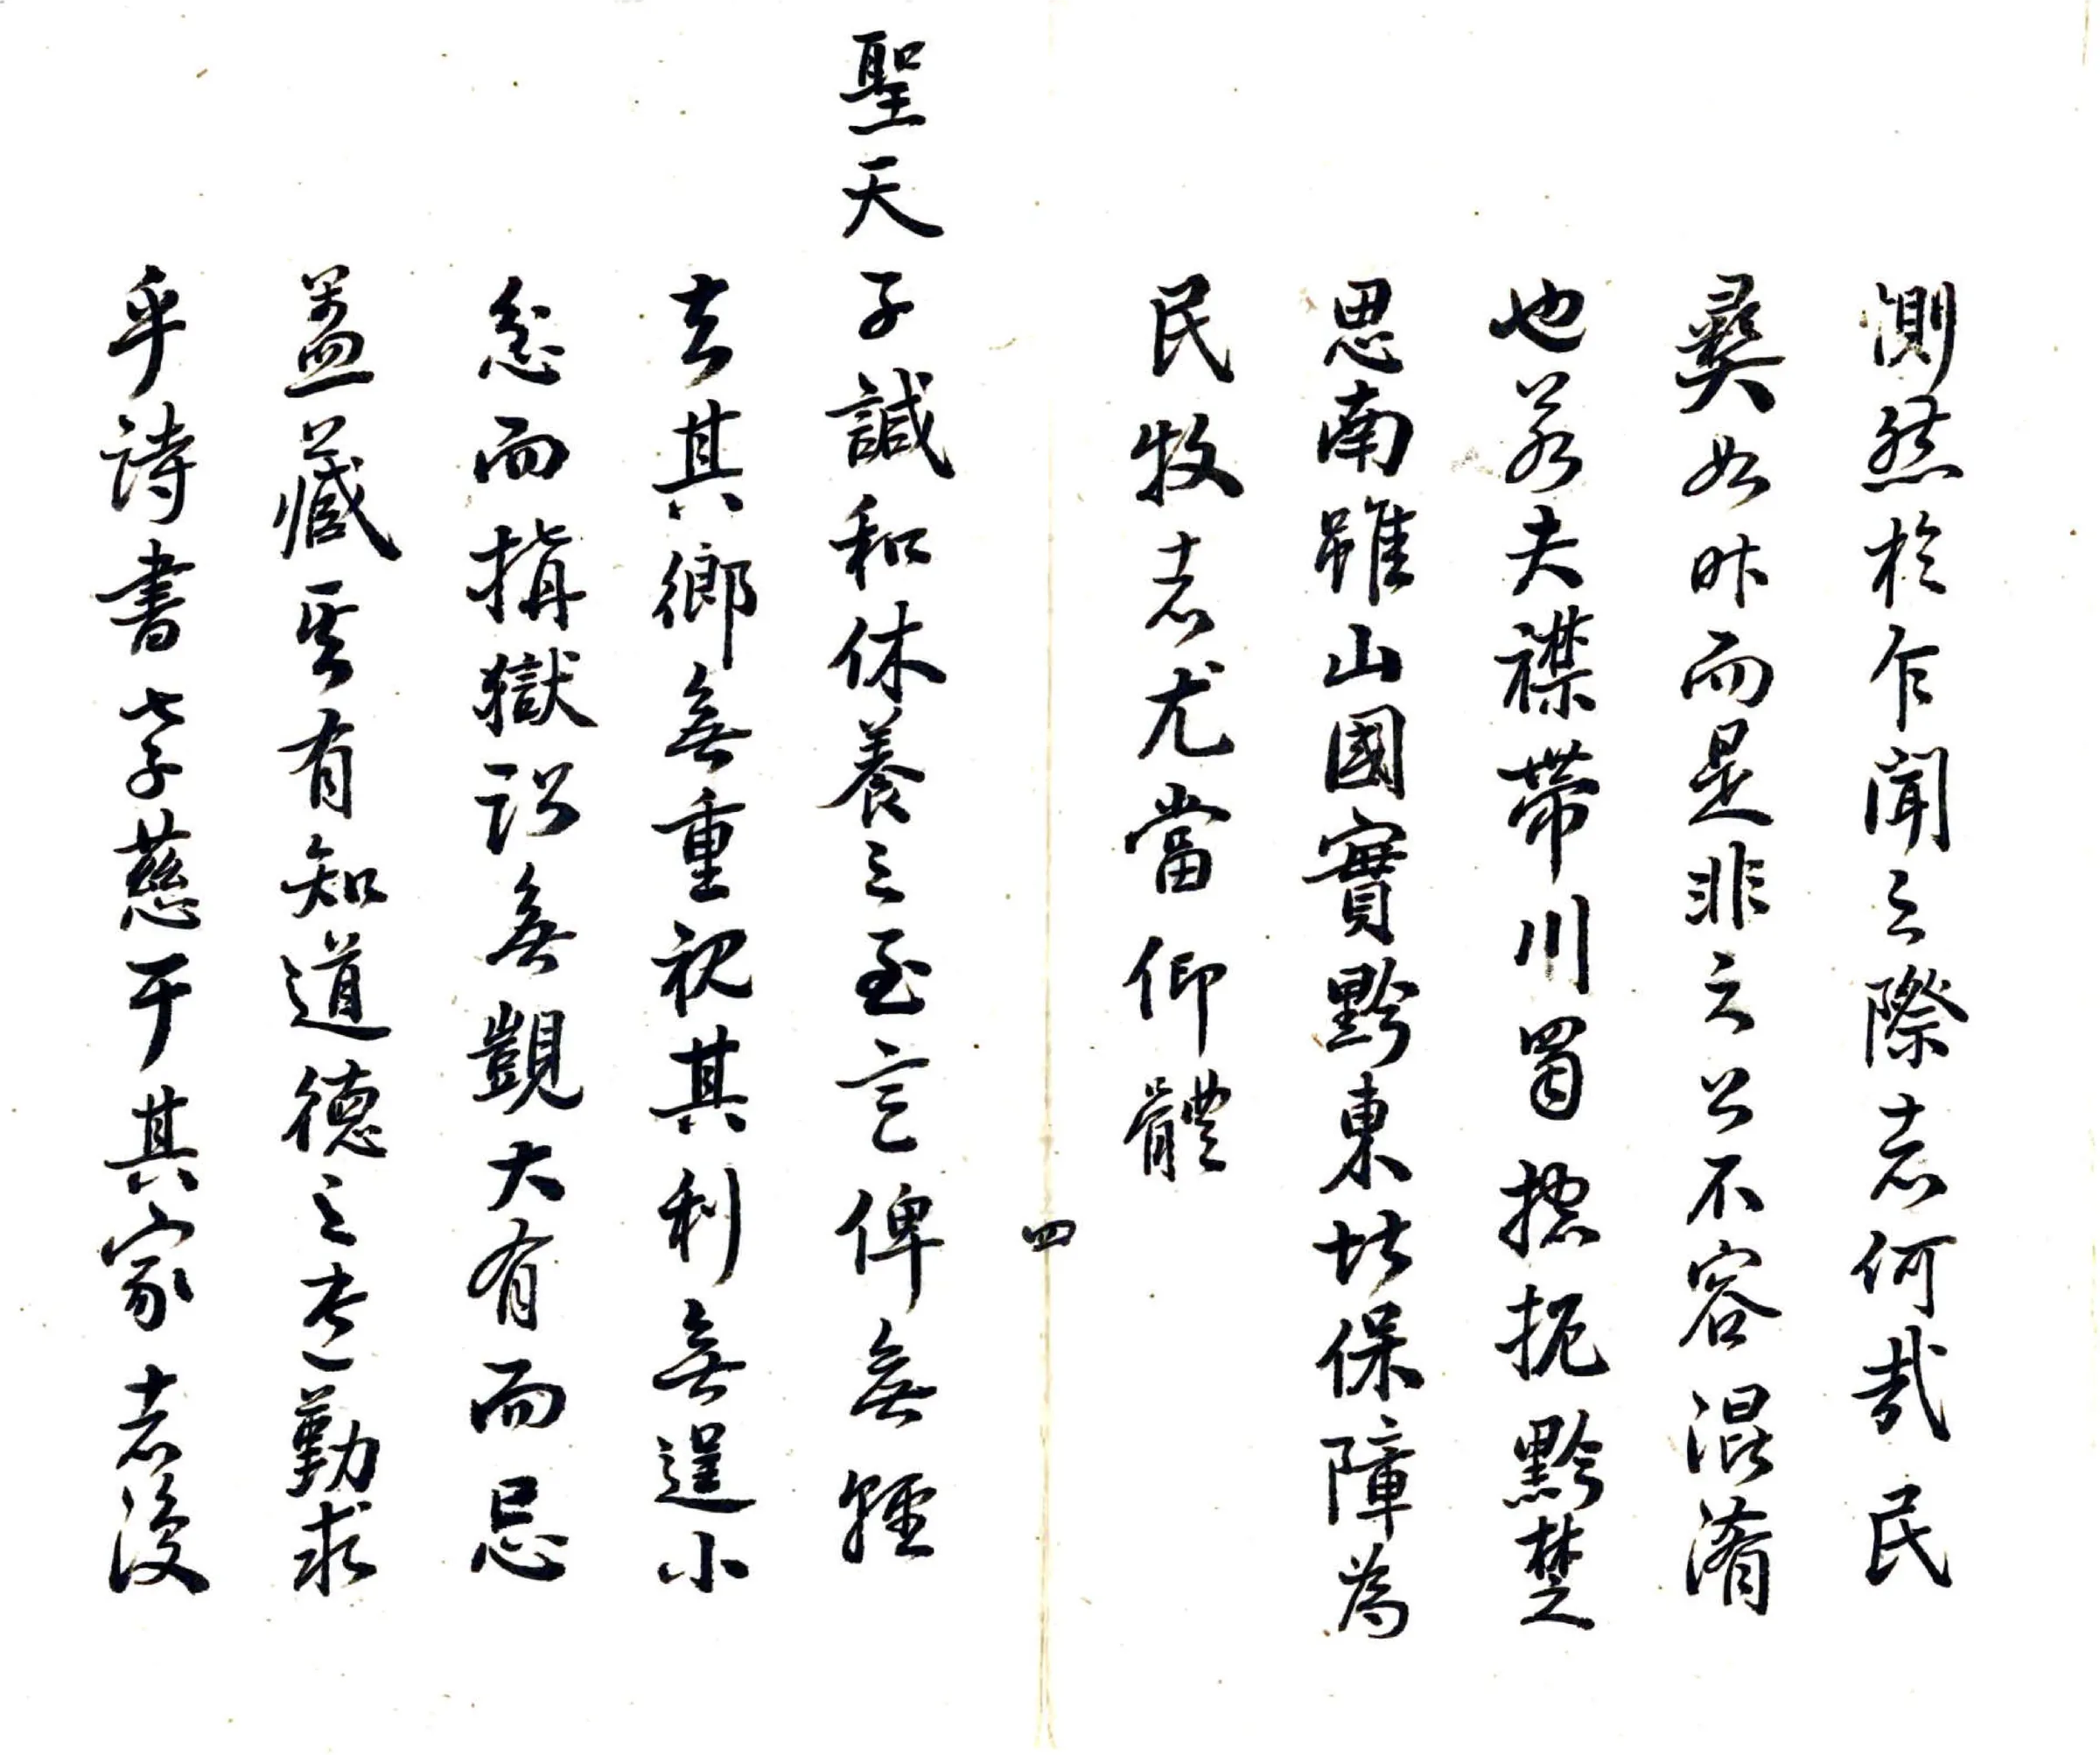 惻然於乍聞之際者何哉民
彛如昨而是非之公不容混淆
也若夫襟帶川蜀控扼黔楚
思南雖山國實黔東北保障為
民牧者尤當仰體
四
聖天子諴和休養之至意俾無輕
去其鄉無重視其利無逞小
忿而搆獄訟無覬大有而忘
蓋藏其有知道德之者勤求
乎詩書孝慈于其家者後